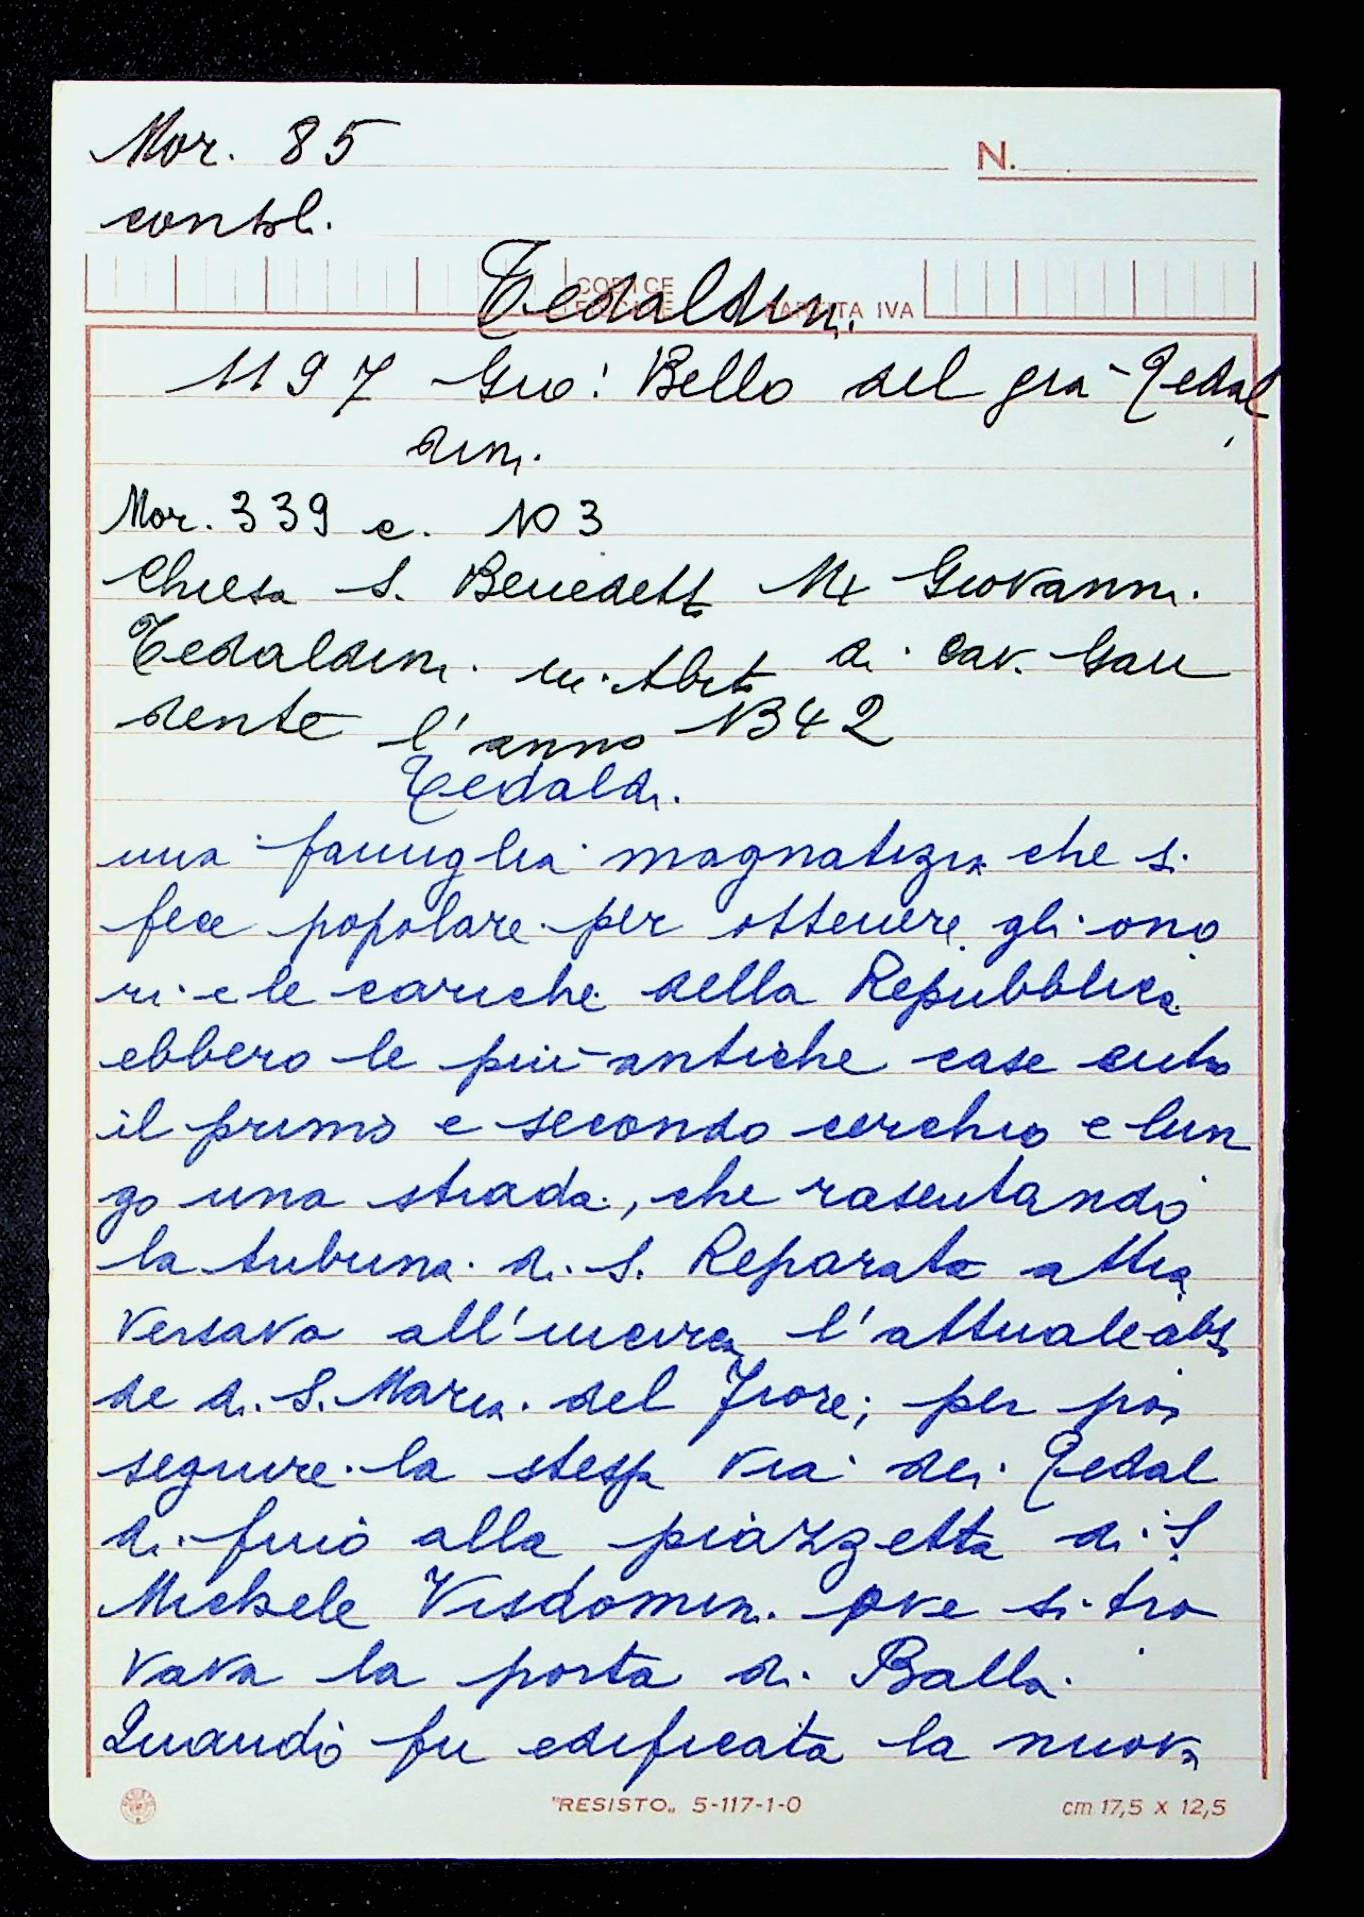 Mor. 85
N.
contrl.
CODICE FISCALE PARTITA IVA
Tedaldini
1197 Gio: Bello del gra Tedal
dini
Mor. 339 c. 103
Chiesa S. Benedett Mr Giovanni
Tedaldini in Abito di cav. Gau
dente l'anno 1342
Tedaldi
una famiglia magnatizia che si
fece popolare per ottenere gli ono
ri e le cariche della Repubblica
ebbero le più antiche case entro
il primo e secondo cerchio e lun
go una strada, che rasentando
la tribuna di S. Reparata attra
versava all'incirca l'attuale absi
de di S. Maria del Fiore; per poi
seguire la stessa via dei Tedal
di fino alla piazzetta di S.
Michele Visdomini ove si tro
vava la porta di Balla.
Quando fu edificata la nuova
"RESISTO" 5-117-1-0
cm 17,5 x 12,5